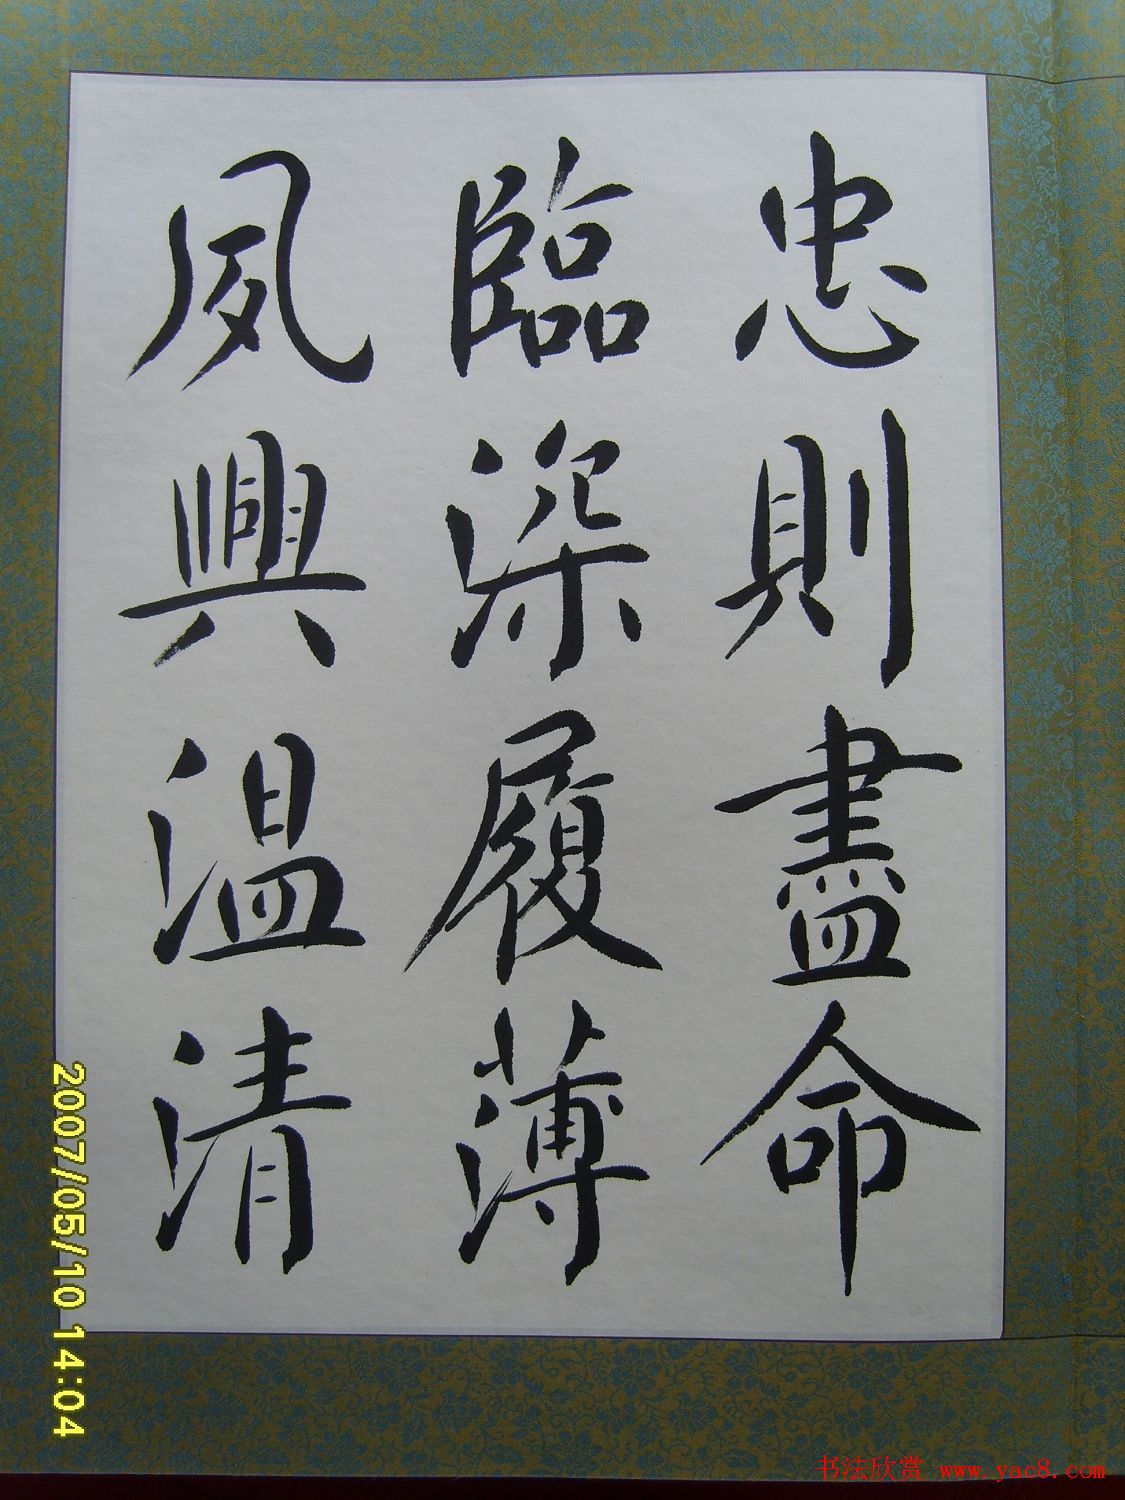 忠則盡命
臨深履薄
夙興温清
2007/05/10 14:04
书法欣赏 www.yac8.com